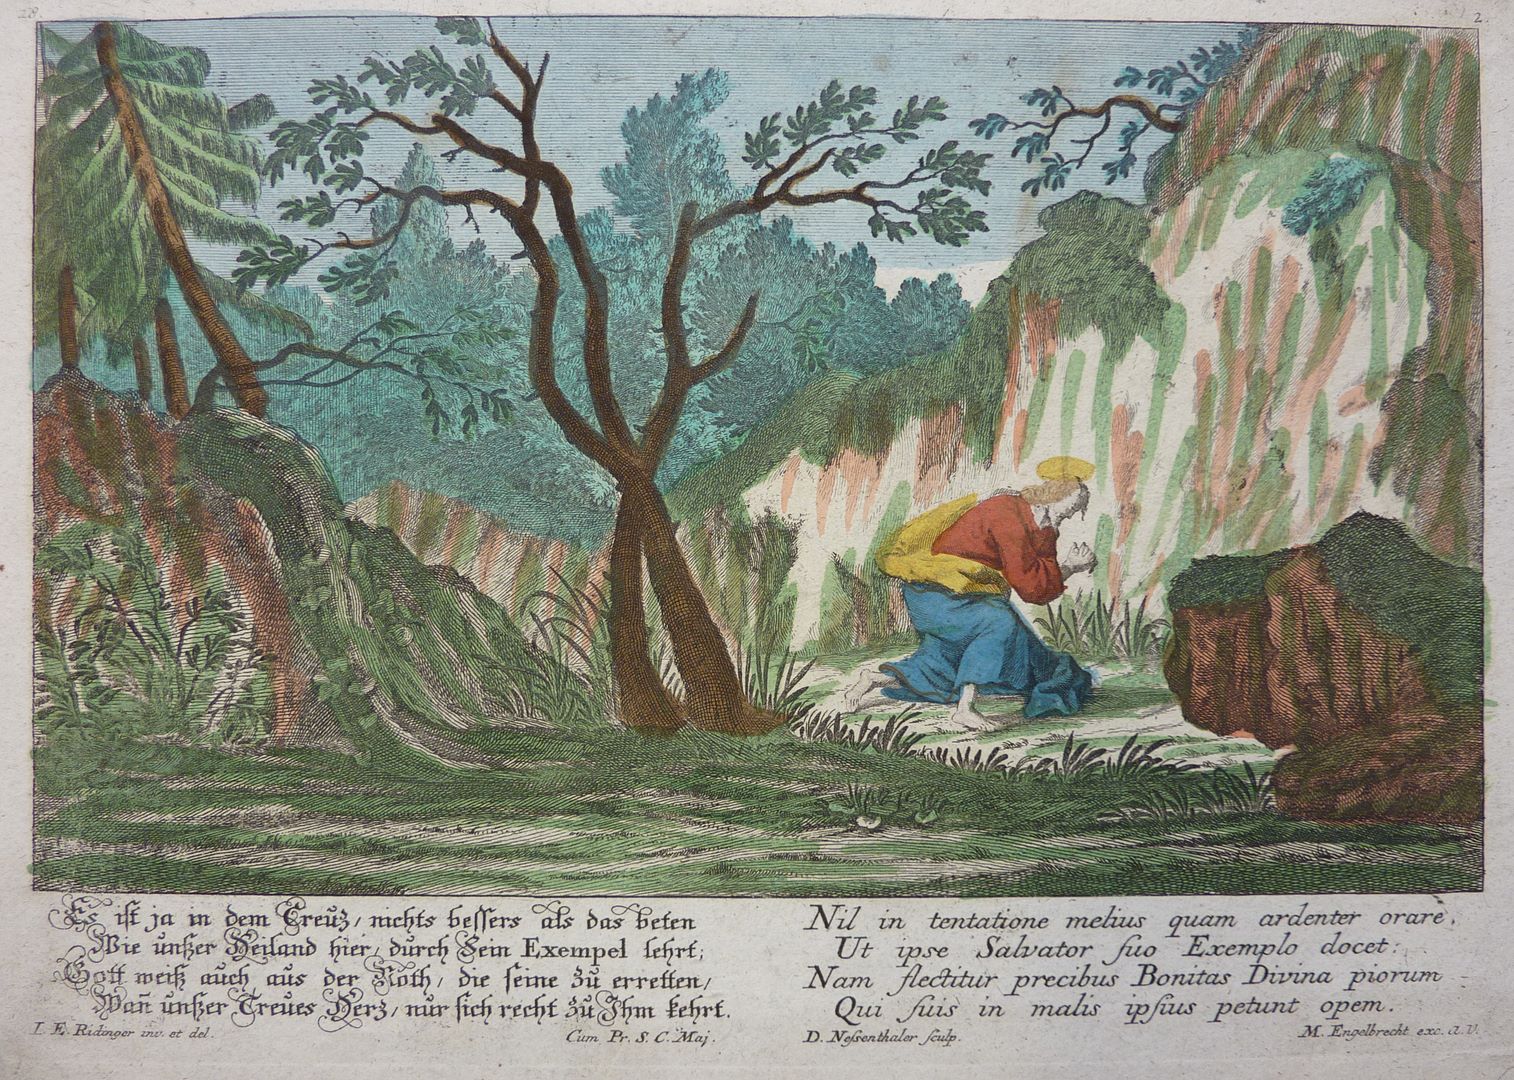 28
2.
Es ist ja in dem Creuz/ nichts bessers als das beten
Wie unßer Heiland hier/ durch Sein Exempel lehrt;
Gott weiß auch aus der Noth/ die seine zu erretten/
Wan̄ unßer Treues Herz/ nur sich recht zu Ihm kehrt.
Nil in tentatione melius quam ardenter orare,
Ut ipse Salvator ſuo Exemplo docet:
Nam flectitur precibus Bonitas Divina piorum
Qui ſuis in malis ipſius petunt opem.
I. E. Ridinger inv. et del.
Cum Pr. S. C. Maj.
D. Neſsenthaler ſculp.
M. Engelbrecht exc. A.V.